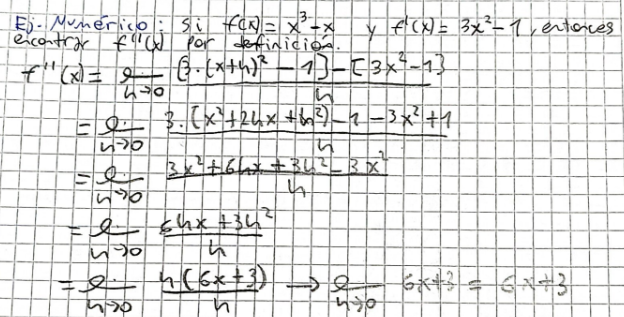 Ej. Numérico: si f(x) = x³-x y f'(x) = 3x²-1, entonces
encontrar f''(x) por definición.
f''(x) = l. h→0 [3.(x+h)² - 1] - [3x²-1] / h
= l. h→0 3.(x²+2hx+h²)-1-3x²+1 / h
= l. h→0 3x²+6hx+3h²-3x² / h
= l. h→0 6hx+3h² / h
= l. h→0 h(6x+3) / h → l. h→0 6x+3 = 6x+3